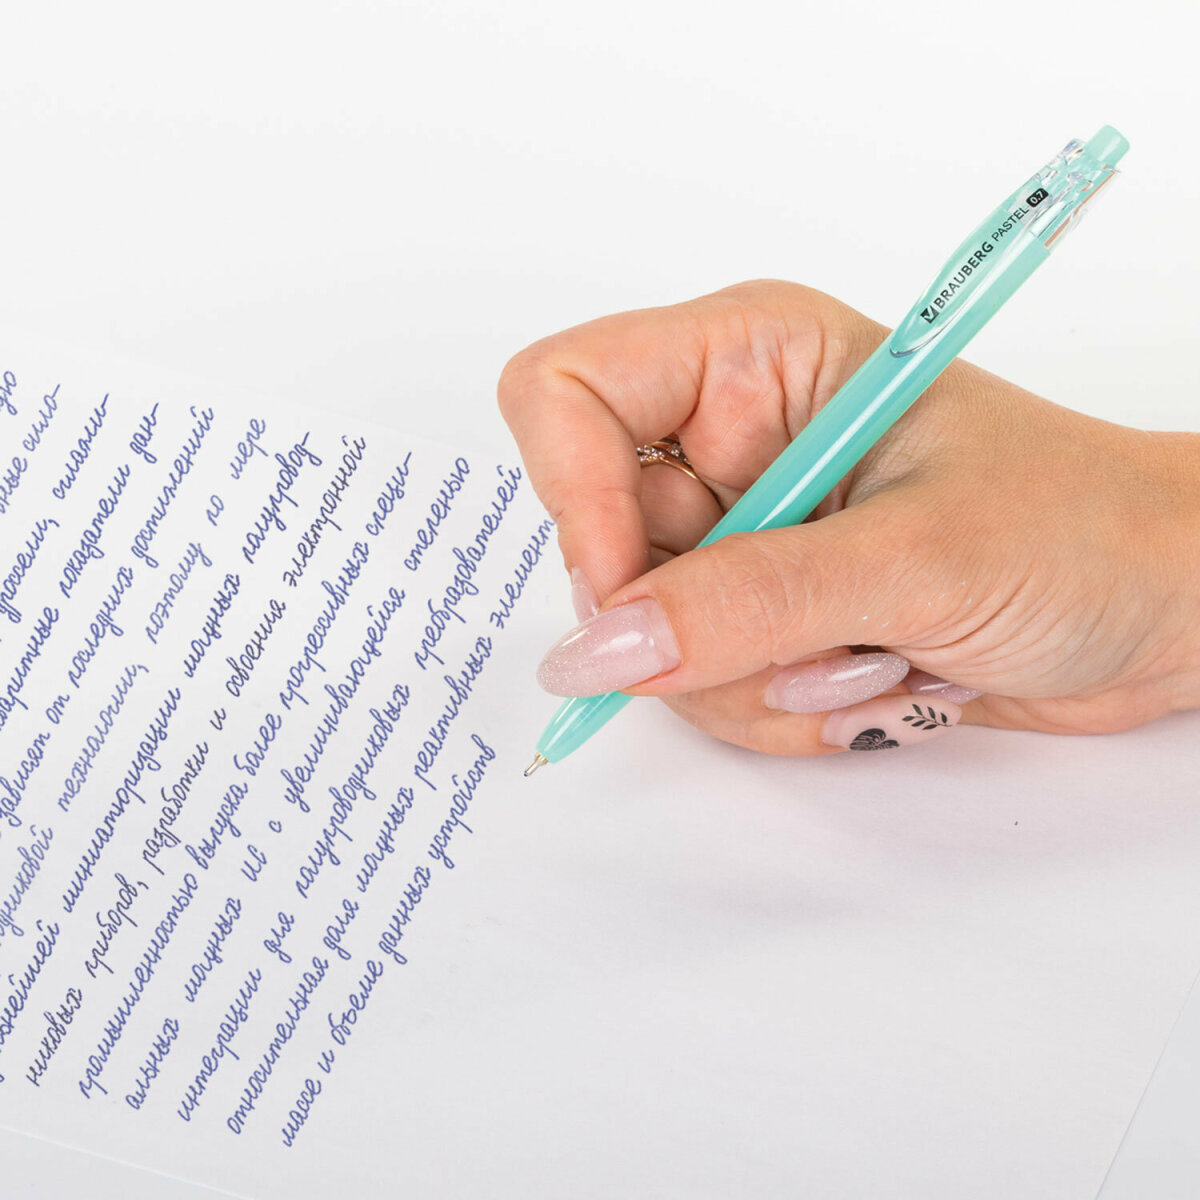 ные сило-
дроссели, сглажи-
габаритные показатели дан-
зависят от последних достижений
технологии, поэтому по мере
нейшей миниатюризации мощных полупровод-
никовых приборов, разработки и освоения электронной
промышленностью выпуска более прогрессивных специ-
альных мощных ИС с увеличивающейся степенью
интеграции для полупроводниковых преобразователей
относительная доля мощных реактивных элемент
массе и объеме данных устройств
BRAUBERG PASTEL 0.7